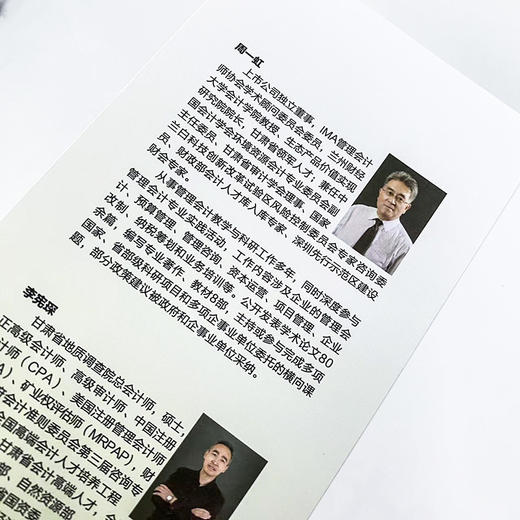 周一虹
上市公司独立董事，IMA管理会计
师协会学术顾问委员会委员、兰州财经
大学会计学院教授、生态产品价值实现
研究院院长，甘肃省领军人才，兼任中
国会计学会环境资源会计专业委员会副
主任委员、甘肃省审计学会理事、国家
兰白科技创新改革试验区风险控制委员会专家咨询委
员、财政部会计人才库入库专家、深圳先行示范区建设
财会专家。
从事管理会计教学与科研工作多年，同时深度参与
管理会计专业实践活动，工作内容涉及企业的管理会
计、预算管理、管理咨询、资本运营、项目管理、企业
改制、纳税筹划和业务培训等。公开发表学术论文80
余篇，编写专业著作、教材8部，主持或参与完成多项
国家、省部级科研项目和多项企事业单位委托的横向课
题，部分政策建议被政府和企事业单位采纳。
甘肃省地质调查院总会计师，硕士
正高级会计师、高级审计师、中国注册
计师（CPA）、美国注册管理会计师
A）、矿业权评估师（MRPAP），财
府会计准则委员会第三届咨询专
全国高端会计人才培养工程
甘肃省会计高端人才，
部、自然资源部
省国资委